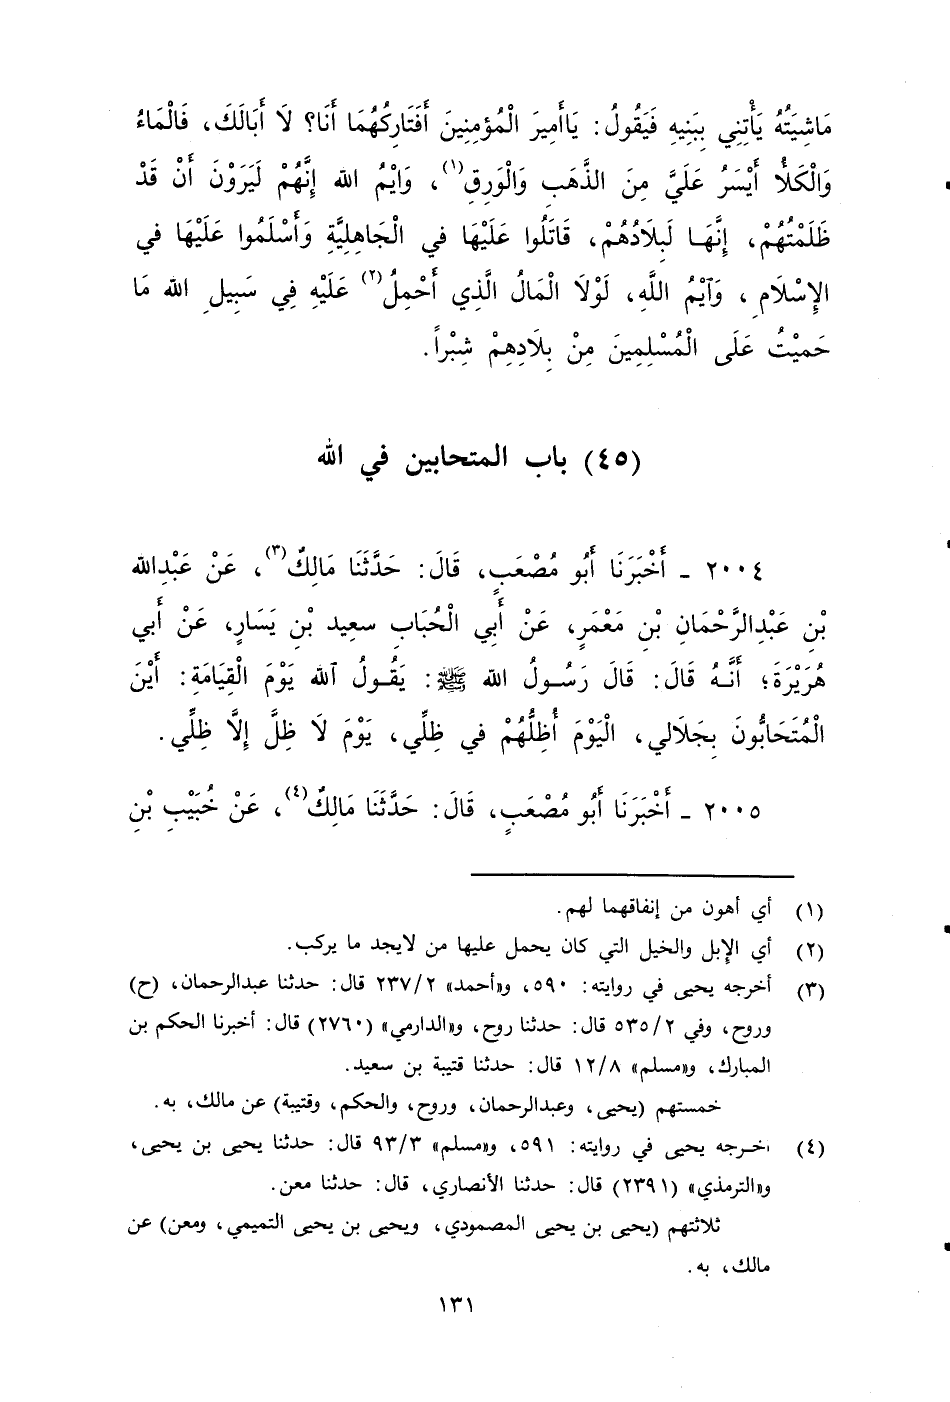 مَاشِيَتُهُ يَأْتِنِي بِبَنِيهِ فَيَقُولُ: يَاأَمِيرَ الْمُؤمِنِينَ أَفَتَارِكُهُمَا أَنَا؟ لَا أَبَالَكَ، فَالْمَاءُ
وَالْكَلأُ أَيْسَرُ عَلَيَّ مِنَ الذَّهَبِ وَالْوَرِقِ(١)، وَايْمُ الله إِنَّهُمْ لَيَرَوْنَ أَنْ قَدْ
ظَلَمْتُهُمْ، إِنَّهَا لَبِلَادُهُمْ، قَاتَلُوا عَلَيْهَا في الْجَاهِلِيَّةِ وَأَسْلَمُوا عَلَيْهَا في
الإِسْلَامِ، وَٱيْمُ اللَّهِ، لَوْلَا الْمَالُ الَّذِي أَحْمِلُ(٢) عَلَيْهِ فِي سَبِيلِ الله مَا
حَمَيْتُ عَلَى الْمُسْلِمِينَ مِنْ بِلَادِهِمْ شِبْراً.
(٤٥) باب المتحابين في الله
٢٠٠٤ ـ أَخْبَرَنَا أَبُو مُصْعَبٍ، قَالَ: حَدَّثَنَا مَالِكٌ(٣)، عَنْ عَبْدِالله
بْنِ عَبْدِالرَّحْمَانِ بْنِ مَعْمَرٍ، عَنْ أَبِي الْحُبَابِ سعِيد بْنِ يَسَارٍ، عَنْ أَبي
هُرَيْرَةَ؛ أَنَّهُ قَالَ: قَالَ رَسُولُ الله ﷺ: يَقُولُ ٱلله يَوْمَ الْقِيَامَةِ: أَيْنَ
الْمُتَحَابُّونَ بِجَلَالي، الْيَوْمَ أُظلُّهُمْ في ظِلِّي، يَوْمَ لَا ظِلَّ إِلَّا ظِلِّي.
٢٠٠٥ ـ أَخْبَرَنَا أَبُو مُصْعَبٍ، قَالَ: حَدَّثَنَا مَالِكٌ(٤)، عَنْ خُبَيْبِ بْنِ
(١) أي أهون من إنفاقهما لهم.
(٢) أي الإبل والخيل التي كان يحمل عليها من لايجد ما يركب.
(٣) أخرجه يحيى في روايته: ٥٩٠، و«أحمد» ٢٣٧/٢ قال: حدثنا عبدالرحمان، (ح)
وروح، وفي ٥٣٥/٢ قال: حدثنا روح، و«الدارمي» (٢٧٦٠) قال: أخبرنا الحكم بن
المبارك، و«مسلم» ١٢/٨ قال: حدثنا قتيبة بن سعيد.
خمستهم (يحيى، وعبدالرحمان، وروح، والحكم، وقتيبة) عن مالك، به.
(٤) اخرجه يحيى في روايته: ٥٩١، و«مسلم» ٩٣/٣ قال: حدثنا يحيى بن يحيى،
و«الترمذي» (٢٣٩١) قال: حدثنا الأنصاري، قال: حدثنا معن.
ثلاثتهم (يحيى بن يحيى المصمودي، ويحيى بن يحيى التميمي، ومعن) عن
مالك، به.
١٣١